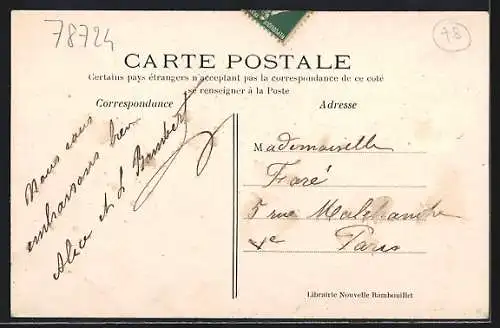 78724
78
CARTE POSTALE
Certains pays étrangers n'acceptant pas la correspondance de ce coté
se renseigner à la Poste
Correspondance
Adresse
Nous vous
embrassons bien
Alice et L
Mademoiselle
Faré
5 rue
Paris
Librairie Nouvelle Rambouillet